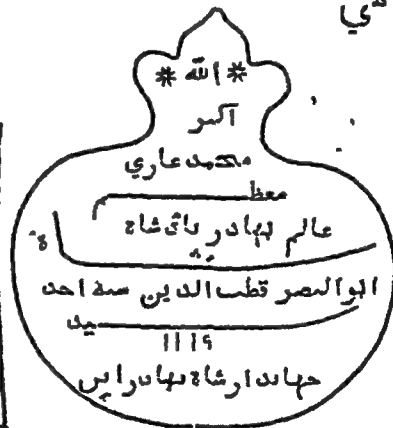 ي
* الله *
آكبر
محمد عاري
معظم
عالم بهادر باقي شاة
ابو النصر قطب الدين سنه احد
سيد
1119
جهاندار شاة بهادر ابن